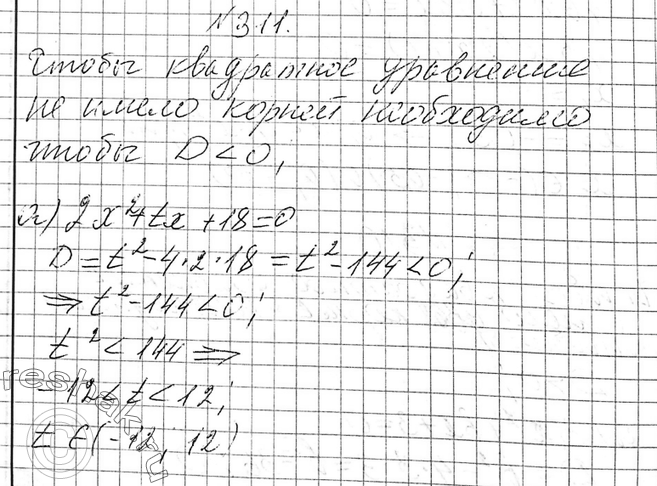 № 3.11.
Чтобы квадратное уравнение
не имело корней необходимо
чтобы D < 0;
а) 2x²+tx+18=0
D = t²-4·2·18 = t²-144<0;
⇒ t²-144<0;
t² < 144 ⇒
-12<t<12;
t ∈ (-12; 12)
reshak.ru